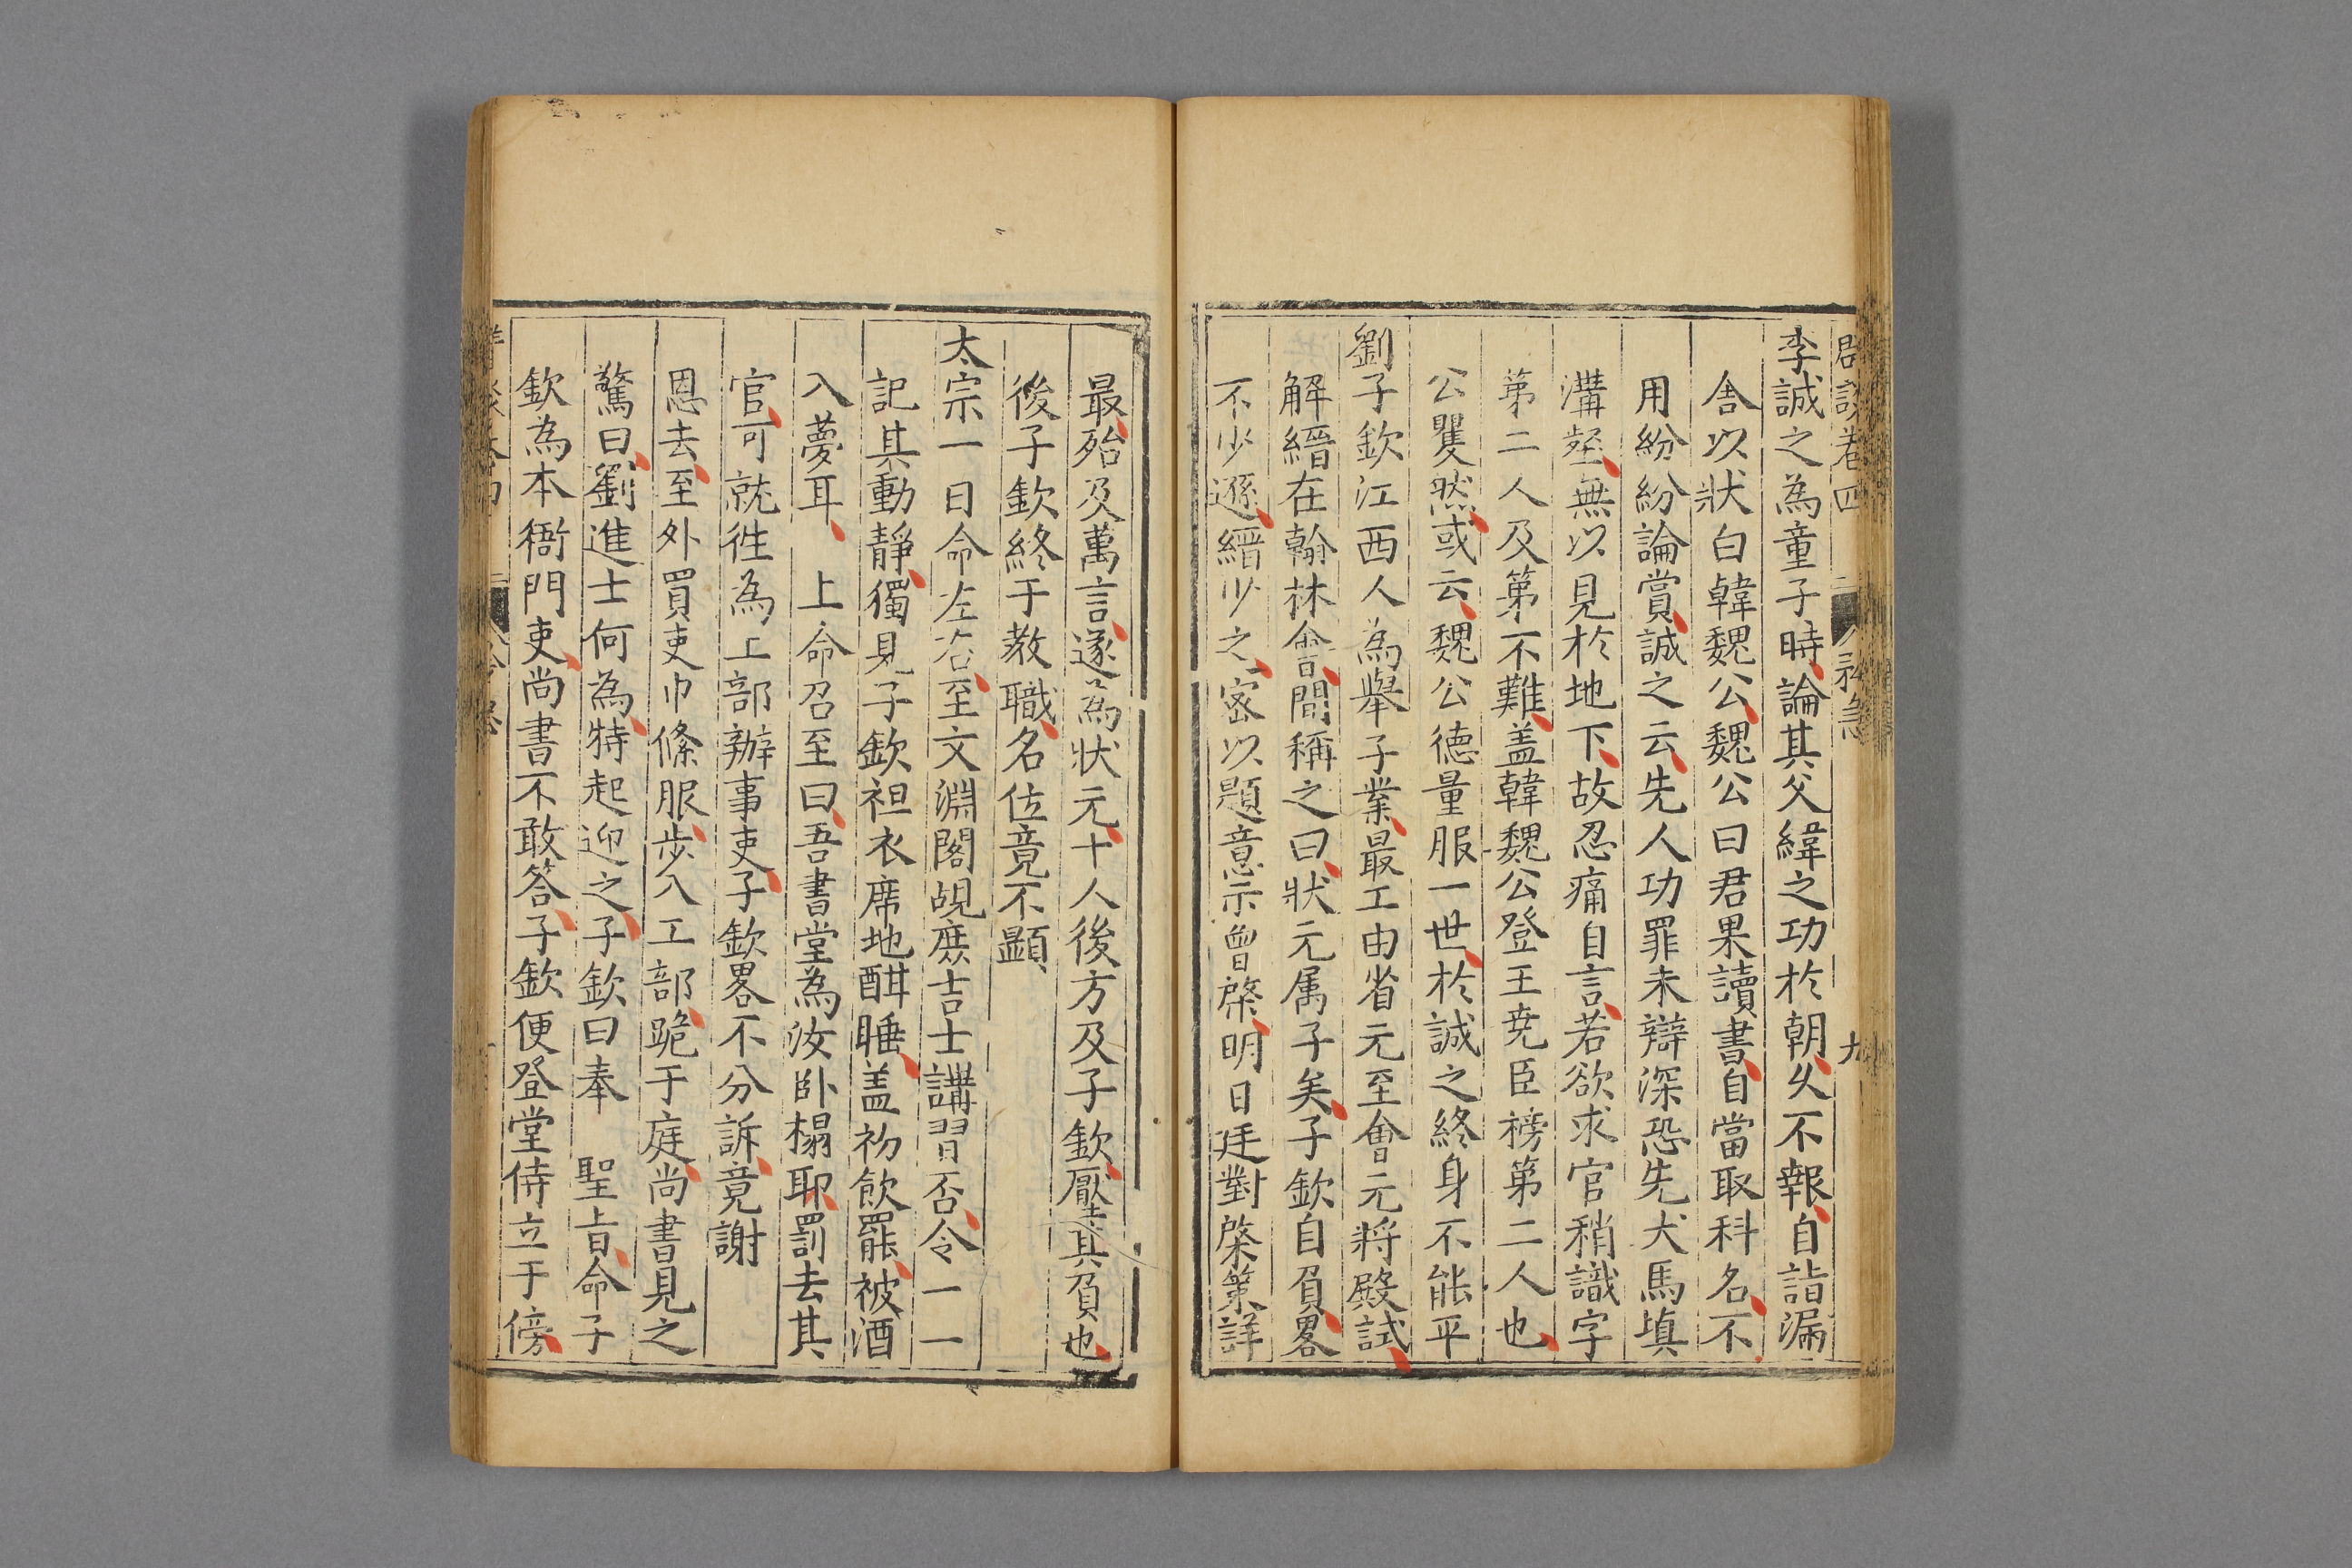 卷四 九
李誠之為童子時論其父緯之功於朝久不報自詣漏
舎以狀白韓魏公魏公曰君果讀書自當取科名不
用紛紛論賞誠之云先人功罪未辯深恐先犬馬填
溝壑無以見於地下故忍痛自言若欲求官稍識字
第二人及第不難盖韓魏公登王尭臣榜第二人也
公瞿然或云魏公德量服一世於誠之終身不能平
劉子欽江西人為舉子業最工由省元至會元將殿試
解縉在翰林會間稱之曰狀元属子矣子欽自負畧
不少遜縉少之密以題意示曾棨明日廷對棨策詳
最殆及萬言遂為狀元十人後方及子欽壓其負也
後子欽終于教職名位竟不顯
太宗一日命左右至文淵閣覘庶吉士講習否令一一
記其動靜獨見子欽袒衣席地酣睡盖初飲罷被酒
入夢耳 上命召至曰吾書堂為汝卧榻耶罰去其
官可就徃為工部辦事吏子欽畧不分訴竟謝
恩去至外買吏巾絛服步入工部跪于庭尚書見之
驚曰劉進士何為特起迎之子欽曰奉 聖旨命子
欽為本衙門吏尚書不敢答子欽便登堂侍立于傍